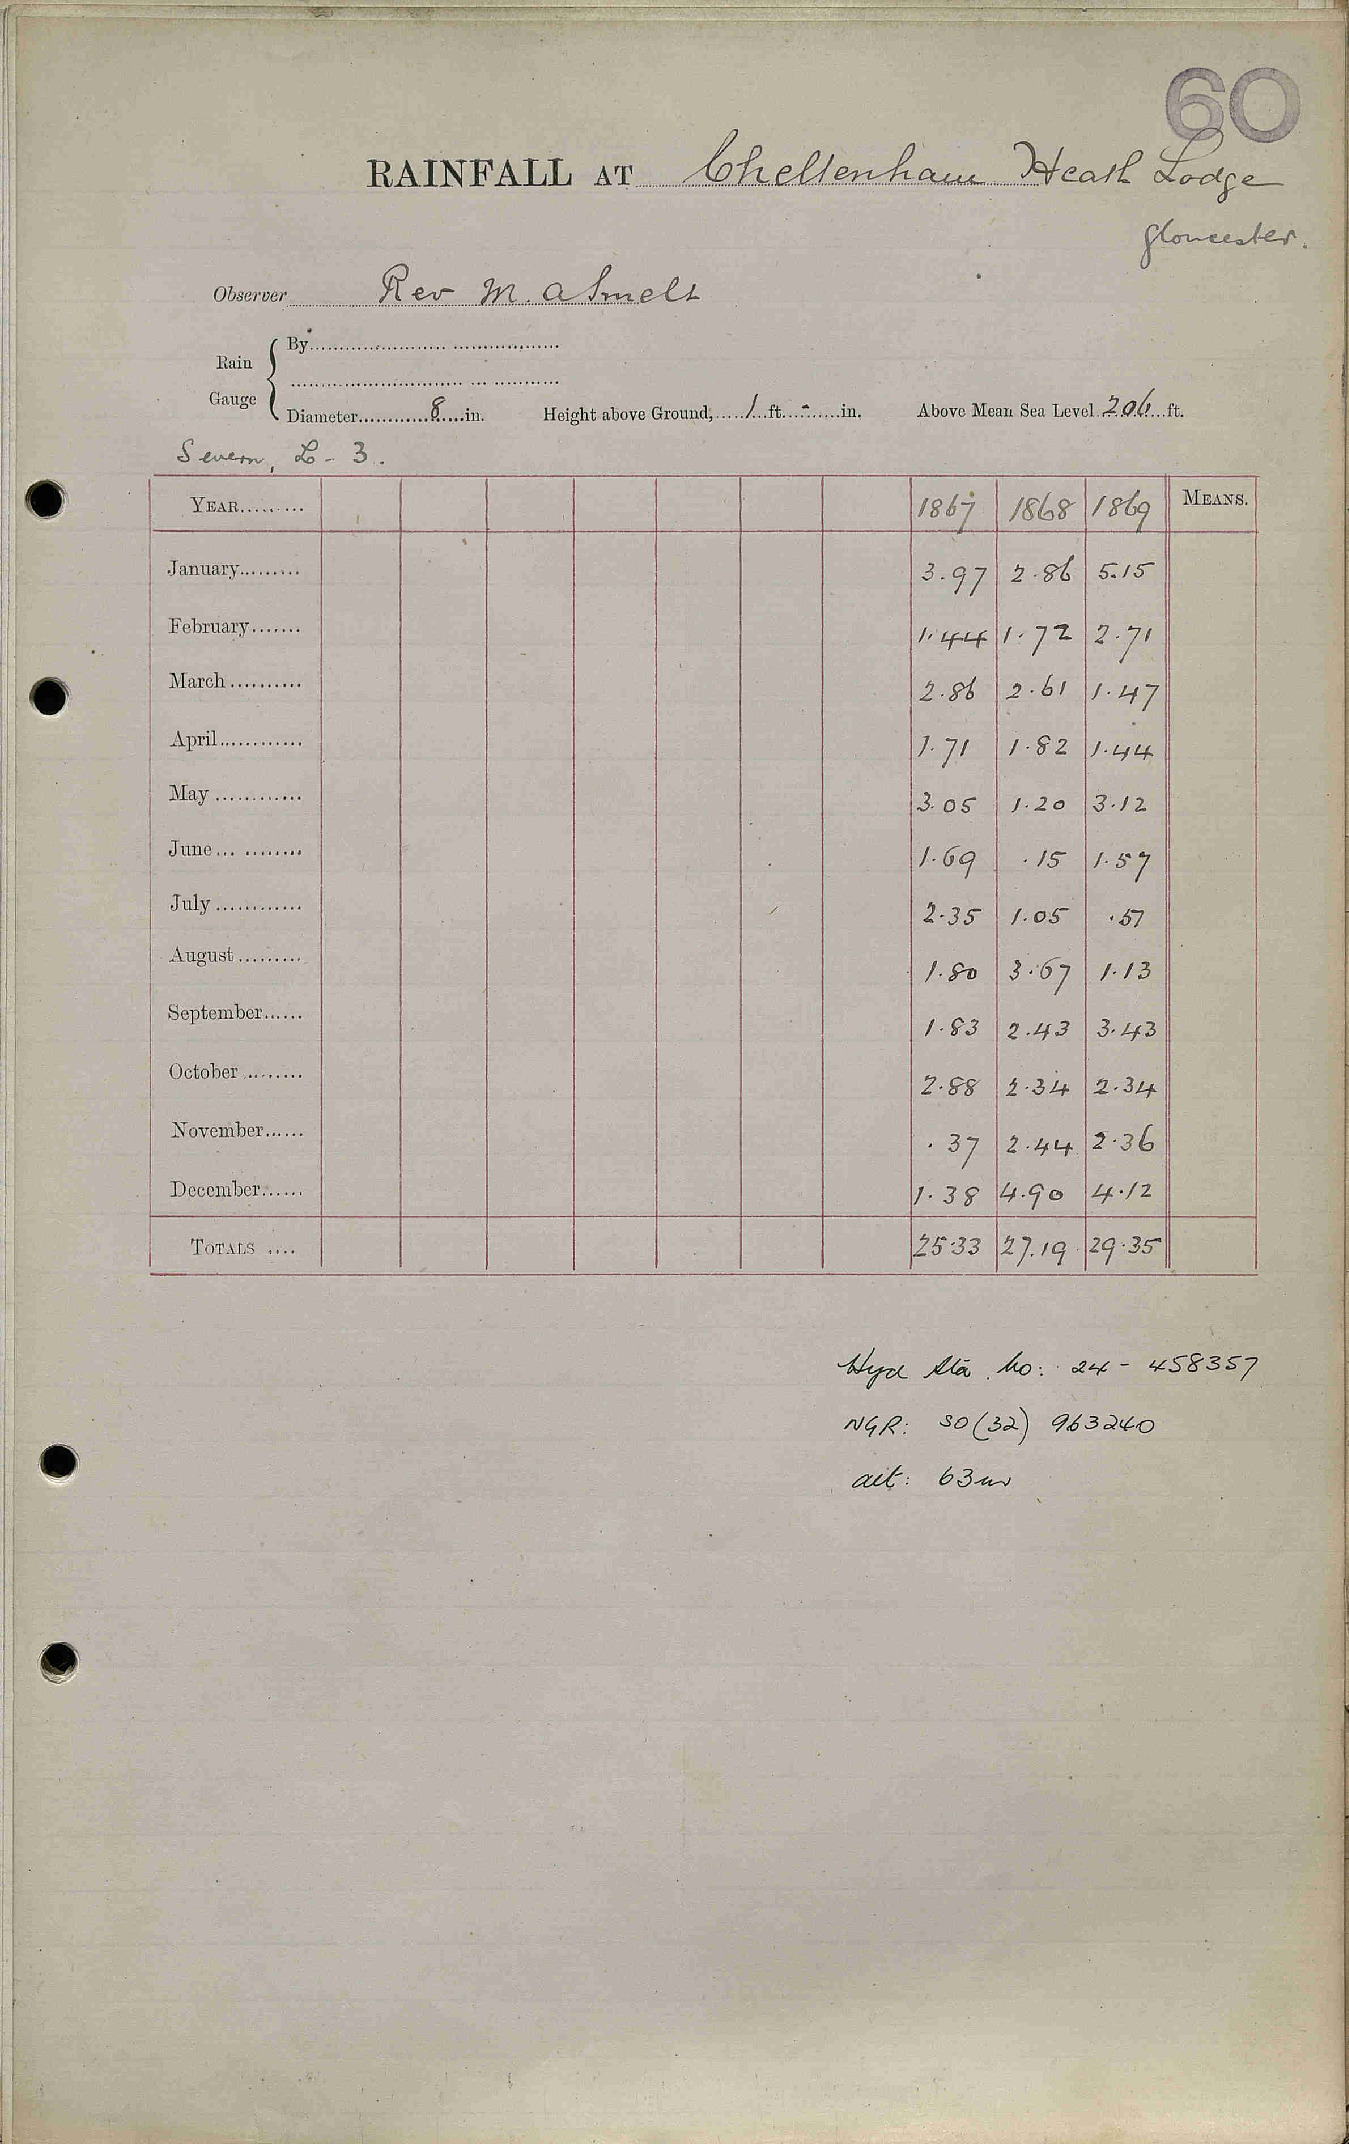 60
RAINFALL AT Cheltenham Heath Lodge
Gloucester.
Observer Rev M. A Smelt
Rain Gauge
By
Diameter 8 in. Height above Ground, 1 ft. - in. Above Mean Sea Level 206 ft.
Severn, L - 3.
YEAR 1867 1868 1869 MEANS.
January 3.97 2.86 5.15
February 1.44 1.72 2.71
March 2.86 2.61 1.47
April 1.71 1.82 1.44
May 3.05 1.20 3.12
June 1.69 .15 1.57
July 2.35 1.05 .51
August 1.80 3.67 1.13
September 1.83 2.43 3.43
October 2.88 2.34 2.34
November .37 2.44 2.36
December 1.38 4.90 4.12
TOTALS 25.33 27.19 29.35
Hyd Sta. No: 24 - 458357
NGR: SO (32) 963240
alt: 63m